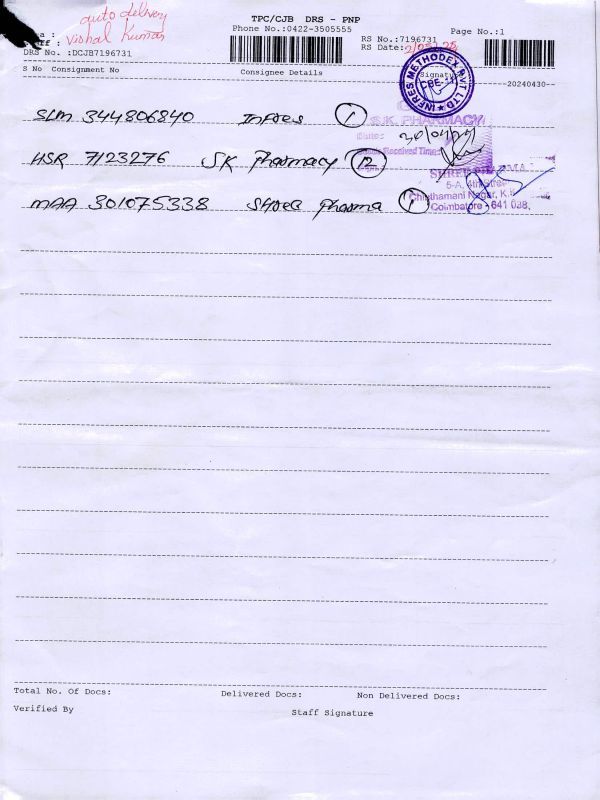 auto delivery
Vishal Kumar
TPC/CJB DRS - PNP
Phone No.:0422-3505555
Page No.:1
RS No.:7196731
RS Date:
DRS No. :DCJB7196731
S No Consignment No Consignee Details Signature --20240430--
INFRES METHODEX PVT LTD
CBE-11
SLM 344806840 Infres 1
S.K. PHARMACY
Date: 30/04/24
Received Time:
HSR 7123276 SK Pharmacy 12
SHREE PHARMA
5-A, 4th Street
Chinthamani Nagar, K.K.
Coimbatore - 641 038.
MAA 301075338 Shree Pharma 1
Total No. Of Docs: Delivered Docs: Non Delivered Docs:
Verified By Staff Signature